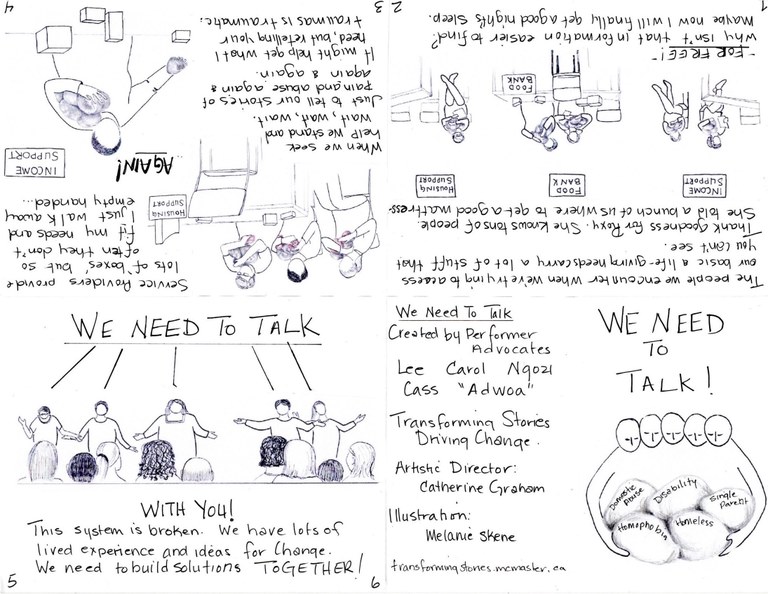 WE NEED
TO
TALK!
Domestic
Abuse
Disability
Single
Parent
Homophobia
Homeless
The people we encounter when we're trying to access
our basic & life-giving needs carry a lot of stuff that
you can't see.
Thank goodness for Roxy. She knows tons of people.
She told a bunch of us where to get a good mattress-
INCOME
SUPPORT
FOOD
BANK
Housing
Support
FOOD
BANK
-FOR FREE!-
Why isn't that information easier to find?
Maybe now I will finally get a good night's sleep.
1
2
When we seek
help we stand and
wait, wait, wait.
Just to tell our stories of
pain and abuse again &
again & again.
It might help get what I
need, but retelling your
traumas is traumatic.
HOUSING
SUPPORT
3
Service Providers provide
lots of 'boxes', but so
often they don't
fit my needs and
I just walk away
empty handed...
...AGAIN!
INCOME
SUPPORT
4
WE NEED TO TALK
WITH YOU!
This system is broken. We have lots of
lived experience and ideas for Change.
We need to build solutions TOGETHER!
5
6
We Need To Talk
Created by Performer
Advocates
Lee Carol Ngozi
Cass "Adwoa"
Transforming Stories
Driving Change.
Artistic Director:
Catherine Graham
Illustration:
Melanie Skene
transformingstories.mcmaster.ca